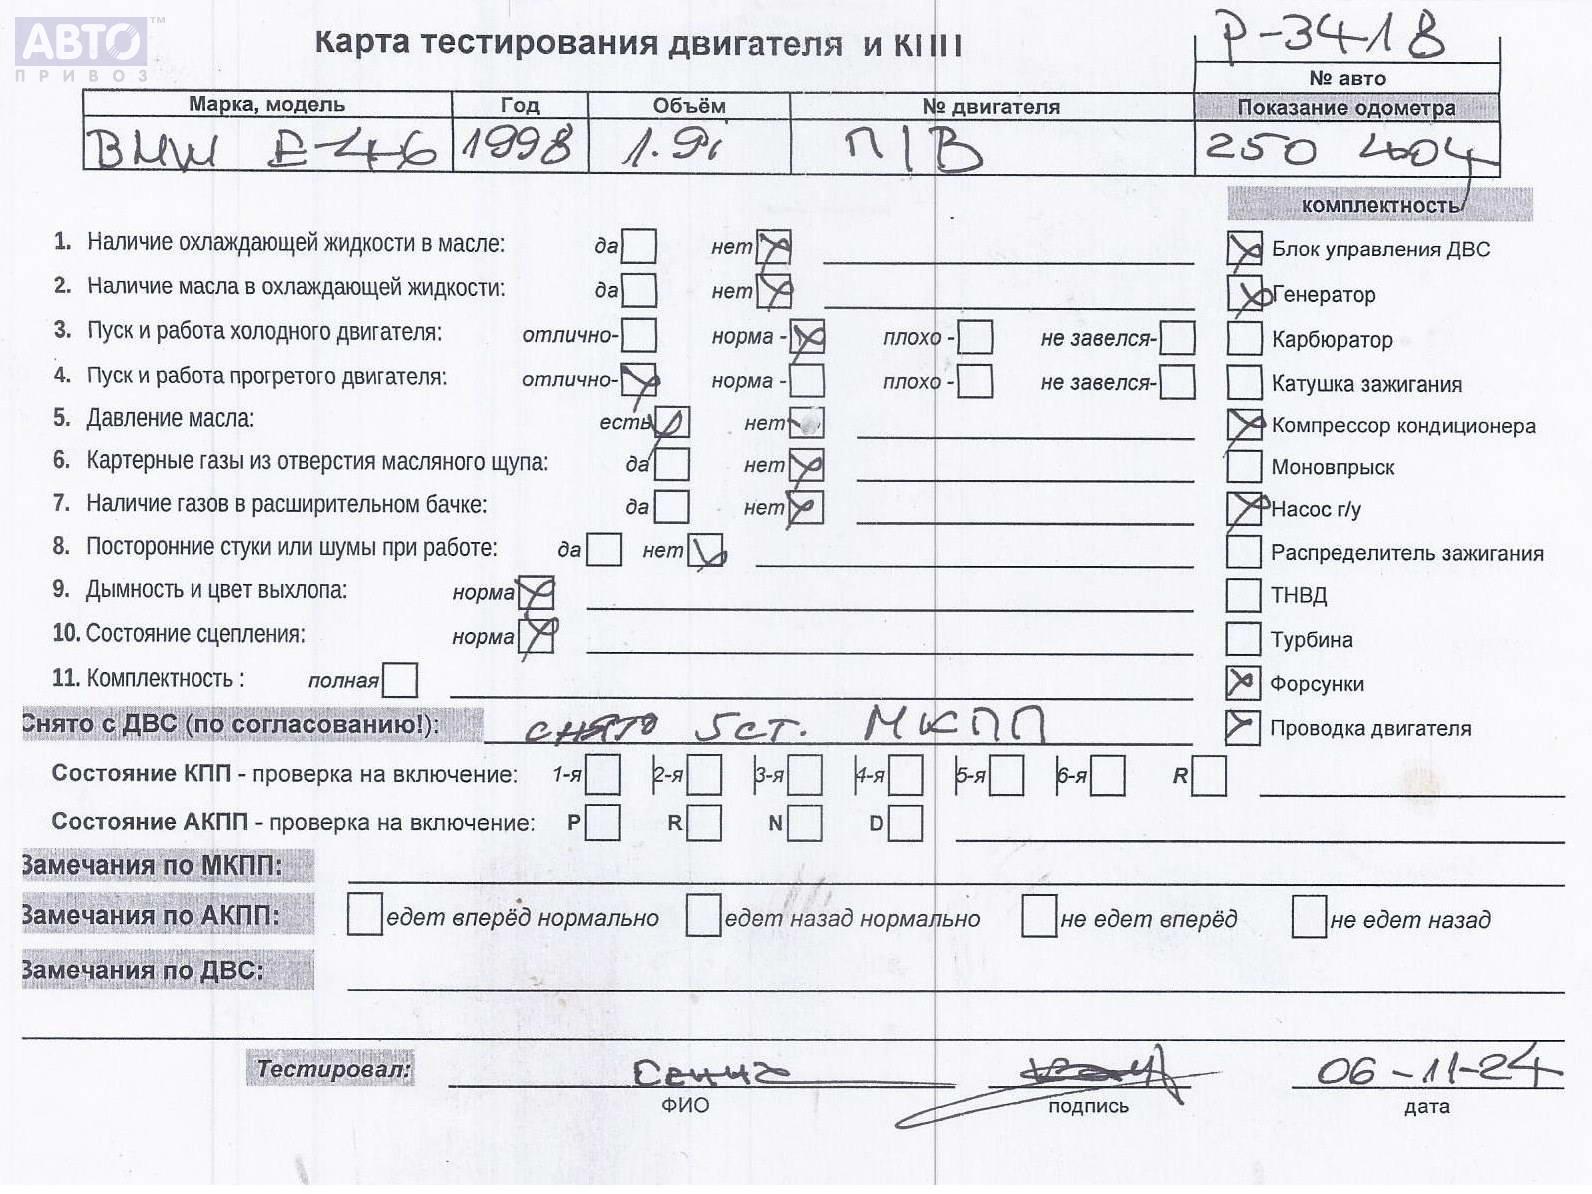 АВТО ™
ПРИВОЗ
Карта тестирования двигателя и КПП
P-3418
№ авто
Марка, модель Год Объём № двигателя Показание одометра
BMW E-46 1998 1.9i П/В 250 404
комплектность
1. Наличие охлаждающей жидкости в масле: да нет
Блок управления ДВС
2. Наличие масла в охлаждающей жидкости: да нет
Генератор
3. Пуск и работа холодного двигателя: отлично- норма - плохо - не завелся-
Карбюратор
4. Пуск и работа прогретого двигателя: отлично- норма - плохо - не завелся-
Катушка зажигания
5. Давление масла: есть нет
Компрессор кондиционера
6. Картерные газы из отверстия масляного щупа: да нет
Моновпрыск
7. Наличие газов в расширительном бачке: да нет
Насос г/у
8. Посторонние стуки или шумы при работе: да нет
Распределитель зажигания
9. Дымность и цвет выхлопа: норма
ТНВД
10. Состояние сцепления: норма
Турбина
11. Комплектность : полная
Форсунки
Снято с ДВС (по согласованию!): снято 5ст. МКПП
Проводка двигателя
Состояние КПП - проверка на включение: 1-я 2-я 3-я 4-я 5-я 6-я R
Состояние АКПП - проверка на включение: P R N D
Замечания по МКПП:
Замечания по АКПП: едет вперёд нормально едет назад нормально не едет вперёд не едет назад
Замечания по ДВС:
Тестировал: 06-11-24
ФИО подпись дата